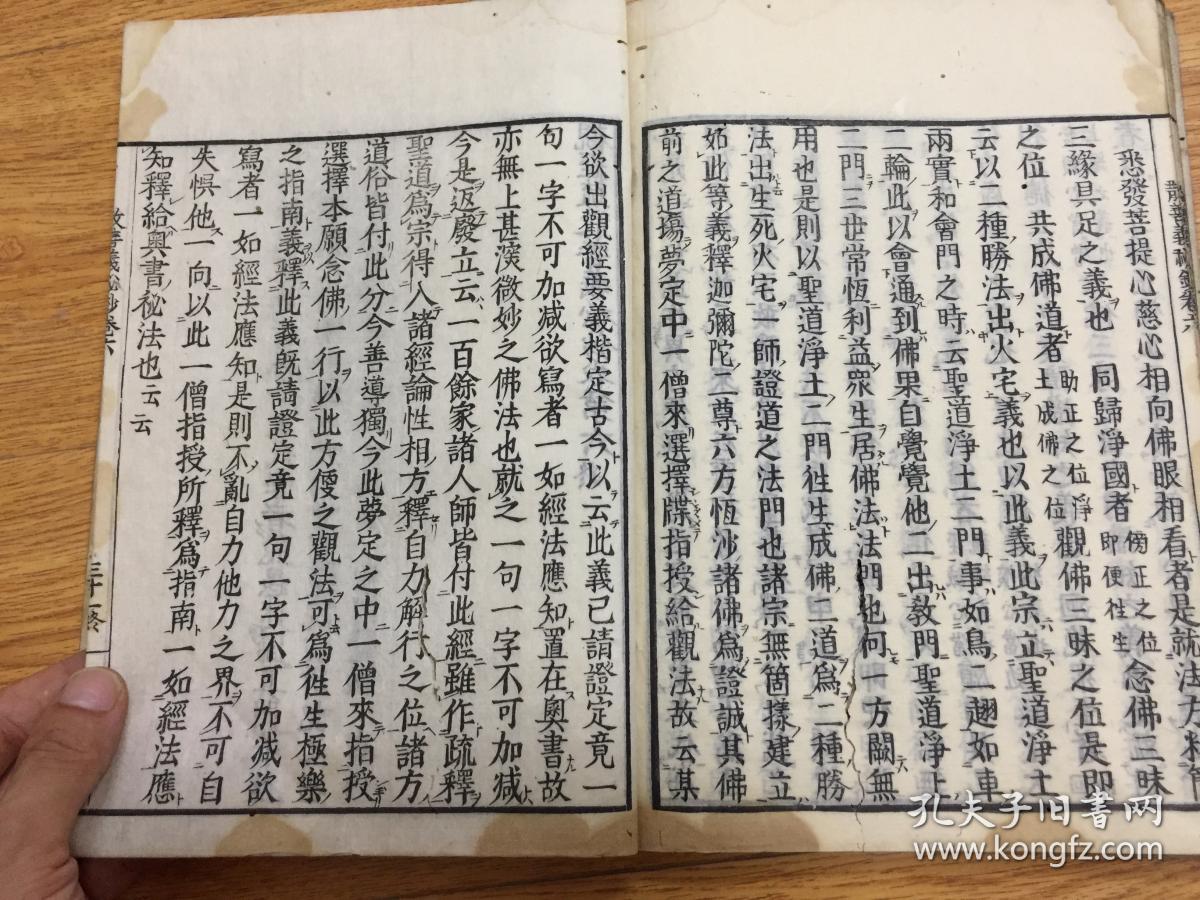 悉發菩提心慈心相向佛眼相看者是就法
三緣具足之義也 同歸淨國者傍正之位即便徃生念佛三昧
之位 共成佛道者助正之位淨土成佛之位觀佛三昧之位是即
云以二種勝法出火宅義也以此義此宗立聖道淨土
兩實和會門之時云聖道淨土二門事如鳥二翅如車
二輪此以會通到佛果自覺覺他二出敎門聖道淨土
二門三世常恆利益衆生居佛法法門也何一方闕無
用也是則以聖道淨土二門徃生成佛二道爲二種勝
法出生死火宅一師證道之法門也諸宗無箇樣建立
如此等義釋迦彌陀二尊六方恆沙諸佛爲證誠其佛
前之道塲夢定中一僧來選擇牒指授給觀法故云某
今欲出觀經要義楷定古今以云此義已請證定竟一
句一字不可加减欲寫者一如經法應知置在奧書故
亦無上甚深微妙之佛法也就之一句一字不可加减
今是返廢立云一百餘家諸人師皆付此經雖作疏釋
聖道爲宗得入諸經論性相方釋自力解行之位諸方
道俗皆付此分今善導獨今此夢定之中一僧來指授
選擇本願念佛一行以此方便之觀法可爲徃生極樂
之指南義釋此義旣請證定竟一句一字不可加减欲
寫者一如經法應知是則不亂自力他力之界不可自
失悞他一向以此一僧指授所釋爲指南一如經法應
知釋給奧書秘法也云云
孔夫子旧书网
www.kongfz.com